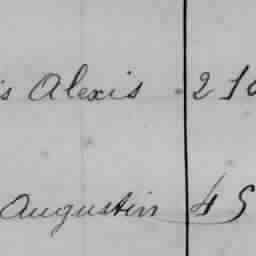 is Alexis 210
Augustin 45